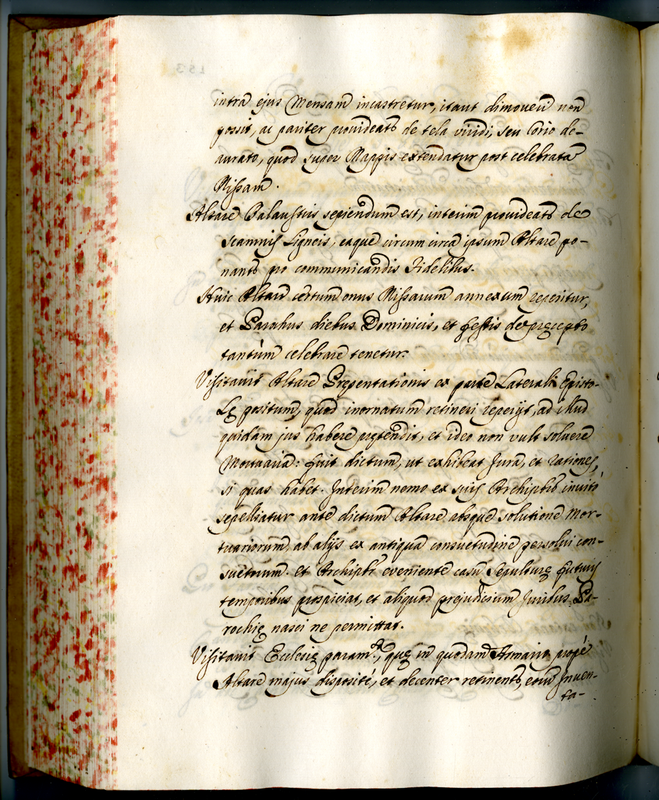 intra ejus Mensam incastretur, itaut dimoveri non
possit, ac pariter provideatr de tela viridi, seu Corio de-
aurato, quod super Mappis extendatur post celebratã
Missam.
Altare Balaustris sepiendum est, interim provideatr de
scamnis Ligneis, eaque circum circa ipsum Altare po-
nantr pro communicandis Fidelibus.
Huic Altari certum onus Missarum annexum reperitur,
et Parochus diebus Dominicis, et festis de precepto
tantùm celebrare tenetur.
Visitavit Altare Presentationis ex parte Laterali Episto-
lę positum, quod inornatum retineri reperijt, ad illud
quidam jus habere pretendit, et ideo non vult soluere
Mortuaria: fuit dictum, ut exhibeat Jura, et rationes,
si quas habet. Interim nemo ex suis Archipbro invito
sepelliatur ante dictum Altare absque solutione Mor-
tuariorum ab alijs ex antiqua consuetudine persolvi con-
suetrum. et Archipbr eveniente casu sepulturę futuris
temporibus prospiciat, et aliquod prejudicium Juribus Pa-
rochię nasci ne permittat.
Visitavit Ecclesię param.ta, quę in quodam Armario prope
Altare majus disposite, et decenter retinentr, eorum Inven-
ta-